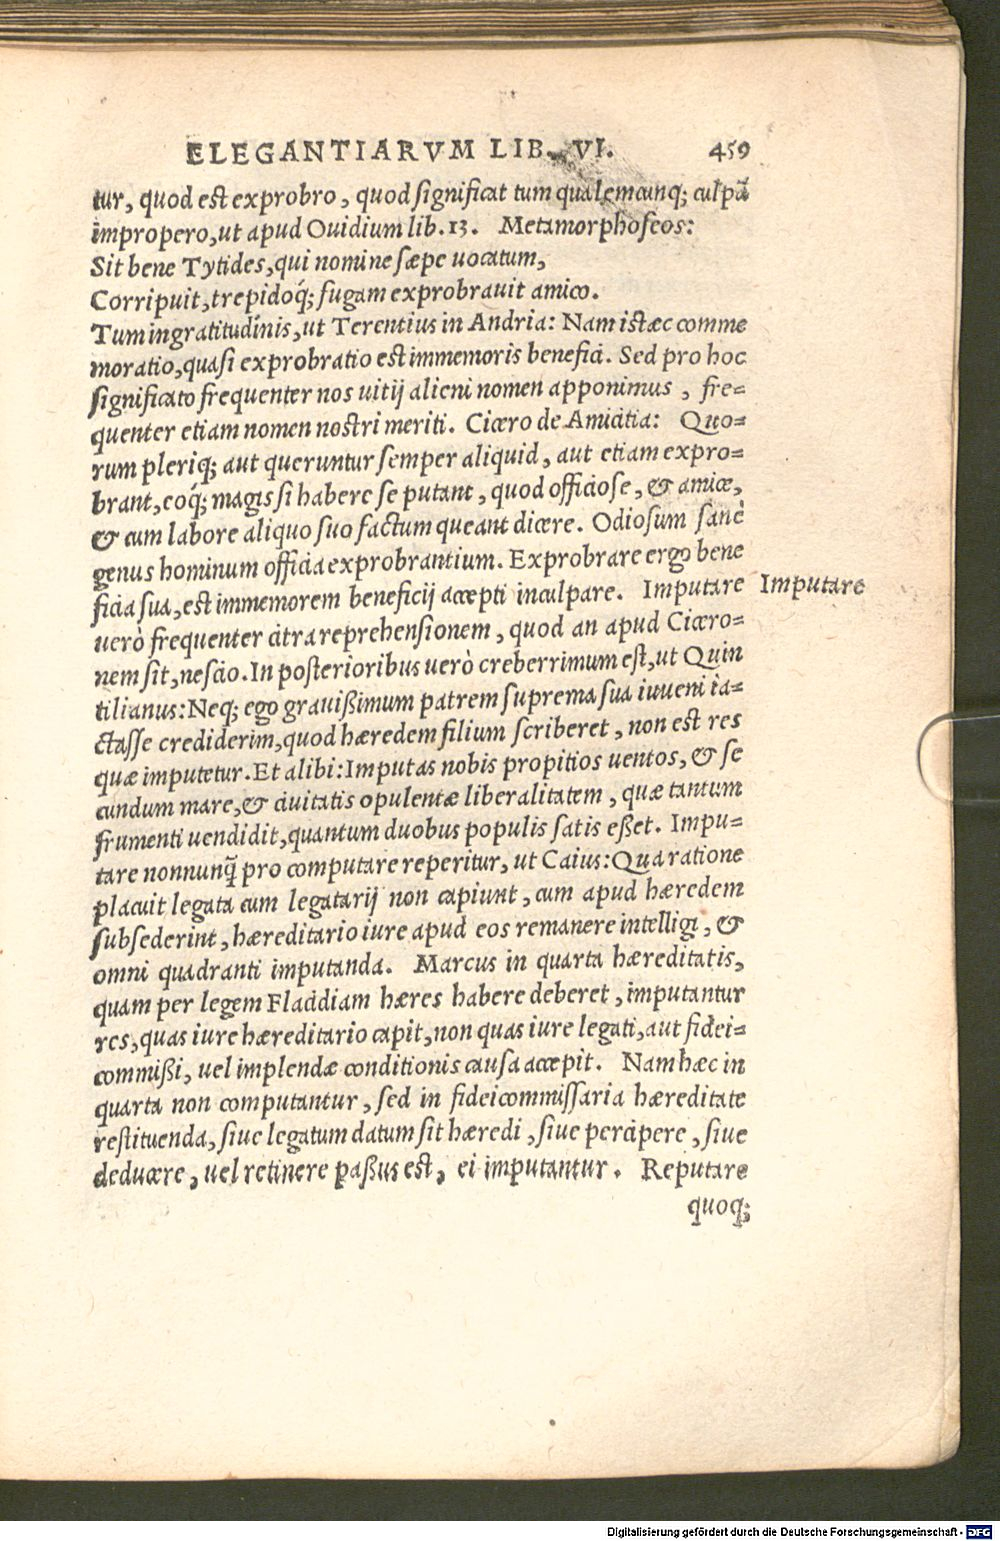 ELEGANTIARVM LIB. VI. 459
tur, quod est exprobro, quod significat tum qualemcunq; culpā
impropero, ut apud Ouidium lib. 13. Metamorphoseos:
Sit bene Tytides, qui nomine sæpe uocatum,
Corripuit, trepidoq́; fugam exprobrauit amico.
Tum ingratitudinis, ut Terentius in Andria: Nam istæc comme
moratio, quasi exprobratio est immemoris benefici. Sed pro hoc
significato frequenter nos uitij alieni nomen apponimus, fre=
quenter etiam nomen nostri meriti. Cicero de Amicitia: Quo=
rum pleriq; aut queruntur semper aliquid, aut etiam expro=
brant, eoq́; magis si habere se putant, quod officiose, & amice,
& cum labore aliquo suo factum queant dicere. Odiosum sanè
genus hominum officia exprobrantium. Exprobrare ergo bene
ficia sua, est immemorem beneficij accepti inculpare. Imputare Imputare
uerò frequenter citra reprehensionem, quod an apud Cicero=
nem sit, nescio. In posterioribus uerò creberrimum est, ut Quin
tilianus: Neq; ego grauißimum patrem suprema sua iuueni ia=
ctasse crediderim, quod hæredem filium scriberet, non est res
quæ imputetur. Et alibi: Imputas nobis propitios uentos, & se
cundum mare, & ciuitatis opulentæ liberalitatem, quæ tantum
frumenti uendidit, quantum duobus populis satis eßet. Impu=
tare nonnunq̃ pro computare reperitur, ut Caius: Qua ratione
placuit legata cum legatarij non capiunt, cum apud hæredem
subsederint, hæreditario iure apud eos remanere intelligi, &
omni quadranti imputanda. Marcus in quarta hæreditatis,
quam per legem Flacidiam hæres habere deberet, imputantur
res, quas iure hæreditario capit, non quas iure legati, aut fidei=
commißi, uel implendæ conditionis causa accepit. Nam hæc in
quarta non computantur, sed in fideicommissaria hæreditate
restituenda, siue legatum datum sit hæredi, siue percipere, siue
deducere, uel retinere paßus est, ei imputantur. Reputare
quoq;
Digitalisierung gefördert durch die Deutsche Forschungsgemeinschaft - DFG